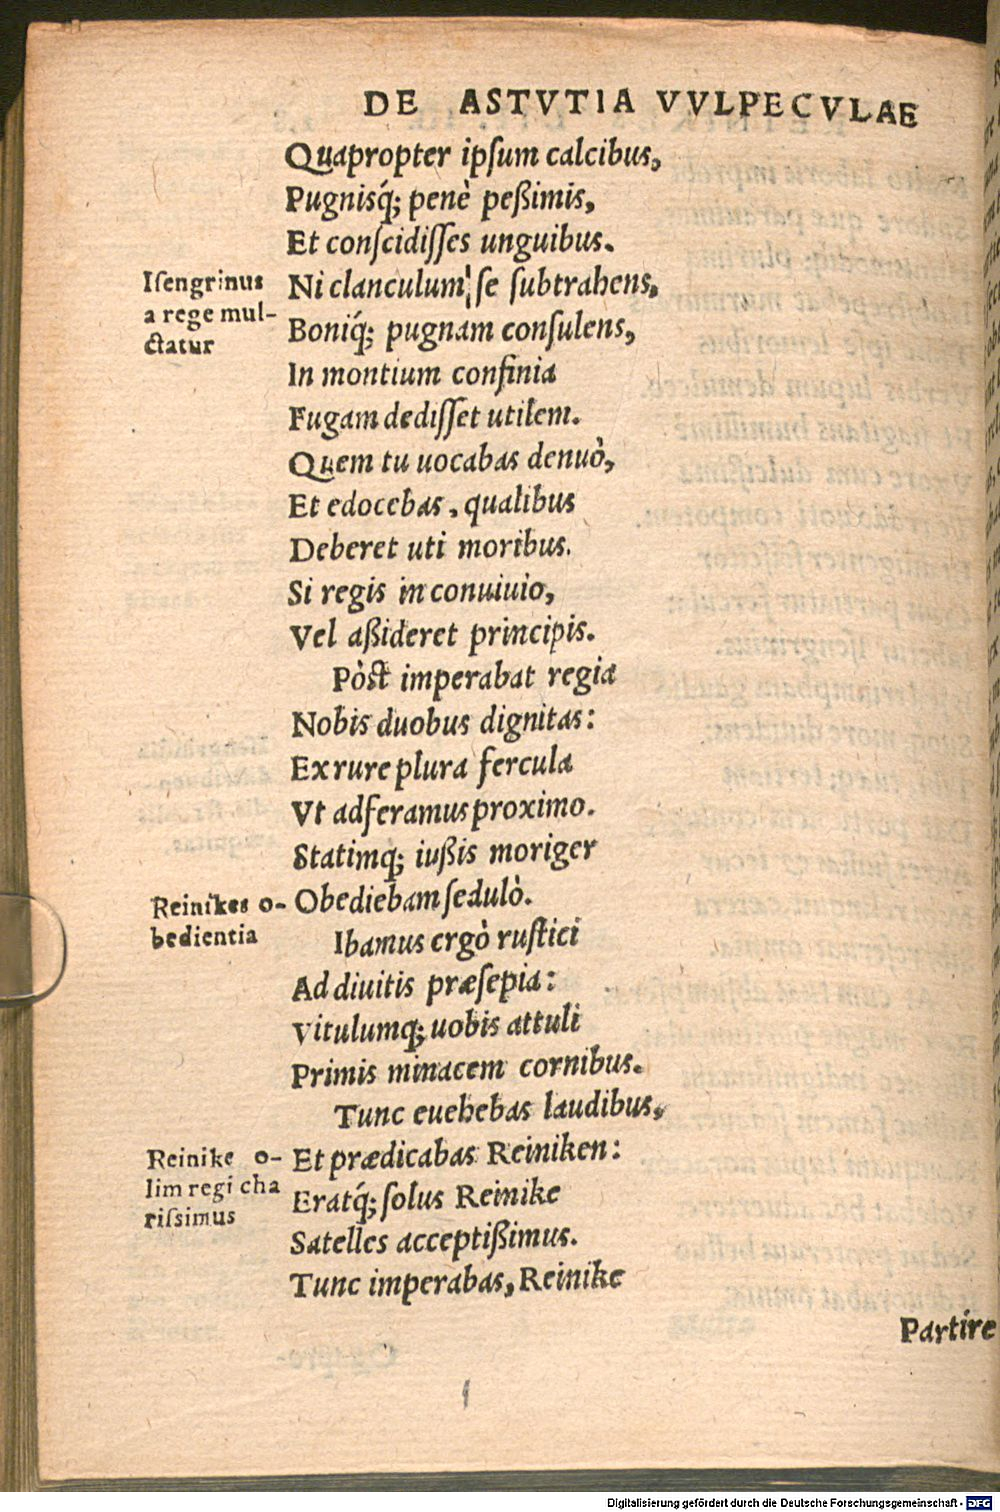 DE ASTVTIA VVLPECVLAE
Quapropter ipſum calcibus,
Pugnisq́; penè peßimis,
Et conſcidiſſes unguibus.
Iſengrinus
a rege mul-
ctatur
Ni clanculum ſe ſubtrahens,
Boniq́; pugnam conſulens,
In montium confinia
Fugam dediſſet utilem.
Quem tu uocabas denuò,
Et edocebas, qualibus
Deberet uti moribus.
Si regis in conuiuio,
Vel aßideret principis.
Pòst imperabat regia
Nobis duobus dignitas:
Ex rure plura fercula
Vt adferamus proximo.
Statimq́; iußis moriger
Reinikes o-
bedientia
Obediebam ſedulò.
Ibamus ergò ruſtici
Ad diuitis præſepia:
Vitulumq́; uobis attuli
Primis minacem cornibus.
Tunc euehebas laudibus,
Reinike o-
lim regi cha
riſsimus
Et prædicabas Reiniken:
Eratq́; ſolus Reinike
Satelles acceptißimus.
Tunc imperabas, Reinike
Partire
Digitalisierung gefördert durch die Deutsche Forschungsgemeinschaft - DFG